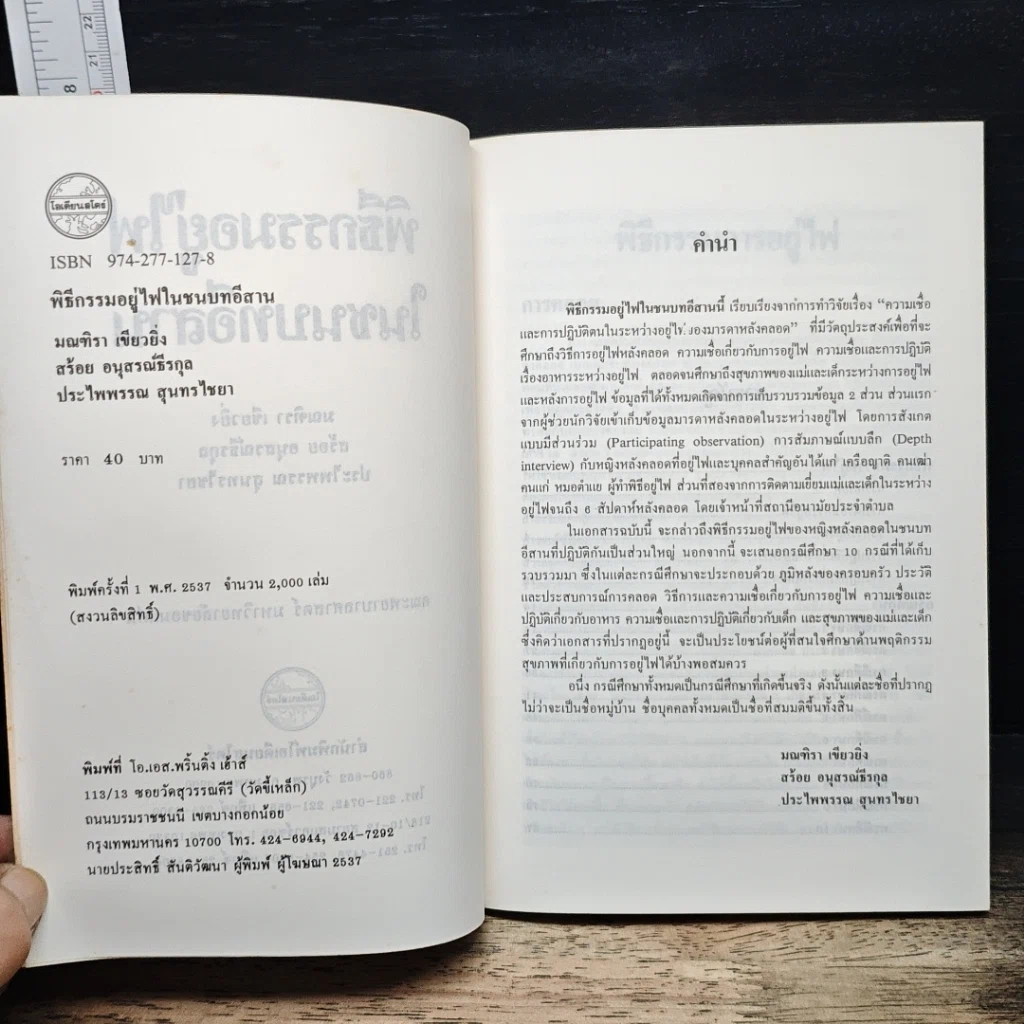 8
22
21
โอเดียนสโตร์
ISBN 974-277-127-8
พิธีกรรมอยู่ไฟในชนบทอีสาน
มณฑิรา เขียวยิ่ง
สร้อย อนุสรณ์ธีรกุล
ประไพพรรณ สุนทรไชยา
ราคา 40 บาท
พิมพ์ครั้งที่ 1 พ.ศ. 2537 จำนวน 2,000 เล่ม
(สงวนลิขสิทธิ์)
พิมพ์ที่ โอ.เอส.พริ้นติ้ง เฮ้าส์
113/13 ซอยวัดสุวรรณคีรี (วัดขี้เหล็ก)
ถนนบรมราชชนนี เขตบางกอกน้อย
กรุงเทพมหานคร 10700 โทร. 424-6944, 424-7292
นายประสิทธิ์ สันติวัฒนา ผู้พิมพ์ ผู้โฆษณา 2537
คำนำ
พิธีกรรมอยู่ไฟในชนบทอีสานนี้ เรียบเรียงจากการทำวิจัยเรื่อง “ความเชื่อ
และการปฏิบัติตนในระหว่างอยู่ไฟของมารดาหลังคลอด” ที่มีวัตถุประสงค์เพื่อที่จะ
ศึกษาถึงวิธีการอยู่ไฟหลังคลอด ความเชื่อเกี่ยวกับการอยู่ไฟ ความเชื่อและการปฏิบัติ
เรื่องอาหารระหว่างอยู่ไฟ ตลอดจนศึกษาถึงสุขภาพของแม่และเด็กระหว่างการอยู่ไฟ
และหลังการอยู่ไฟ ข้อมูลที่ได้ทั้งหมดเกิดจากการเก็บรวบรวมข้อมูล 2 ส่วน ส่วนแรก
จากผู้ช่วยนักวิจัยเข้าเก็บข้อมูลมารดาหลังคลอดในระหว่างอยู่ไฟ โดยการสังเกต
แบบมีส่วนร่วม (Participating observation) การสัมภาษณ์แบบลึก (Depth
interview) กับหญิงหลังคลอดที่อยู่ไฟและบุคคลสำคัญอันได้แก่ เครือญาติ คนเฒ่า
คนแก่ หมอตำแย ผู้ทำพิธีอยู่ไฟ ส่วนที่สองจากการติดตามเยี่ยมแม่และเด็กในระหว่าง
อยู่ไฟจนถึง 6 สัปดาห์หลังคลอด โดยเจ้าหน้าที่สถานีอนามัยประจำตำบล
ในเอกสารฉบับนี้ จะกล่าวถึงพิธีกรรมอยู่ไฟของหญิงหลังคลอดในชนบท
อีสานที่ปฏิบัติกันเป็นส่วนใหญ่ นอกจากนี้ จะเสนอกรณีศึกษา 10 กรณีที่ได้เก็บ
รวบรวมมา ซึ่งในแต่ละกรณีศึกษาจะประกอบด้วย ภูมิหลังของครอบครัว ประวัติ
และประสบการณ์การคลอด วิธีการและความเชื่อเกี่ยวกับการอยู่ไฟ ความเชื่อและ
ปฏิบัติเกี่ยวกับอาหาร ความเชื่อและการปฏิบัติเกี่ยวกับเด็ก และสุขภาพของแม่และเด็ก
ซึ่งคิดว่าเอกสารที่ปรากฏอยู่นี้ จะเป็นประโยชน์ต่อผู้ที่สนใจศึกษาด้านพฤติกรรม
สุขภาพที่เกี่ยวกับการอยู่ไฟได้บ้างพอสมควร
อนึ่ง กรณีศึกษาทั้งหมดเป็นกรณีศึกษาที่เกิดขึ้นจริง ดังนั้นแต่ละชื่อที่ปรากฏ
ไม่ว่าจะเป็นชื่อหมู่บ้าน ชื่อบุคคลทั้งหมดเป็นชื่อที่สมมติขึ้นทั้งสิ้น
มณฑิรา เขียวยิ่ง
สร้อย อนุสรณ์ธีรกุล
ประไพพรรณ สุนทรไชยา